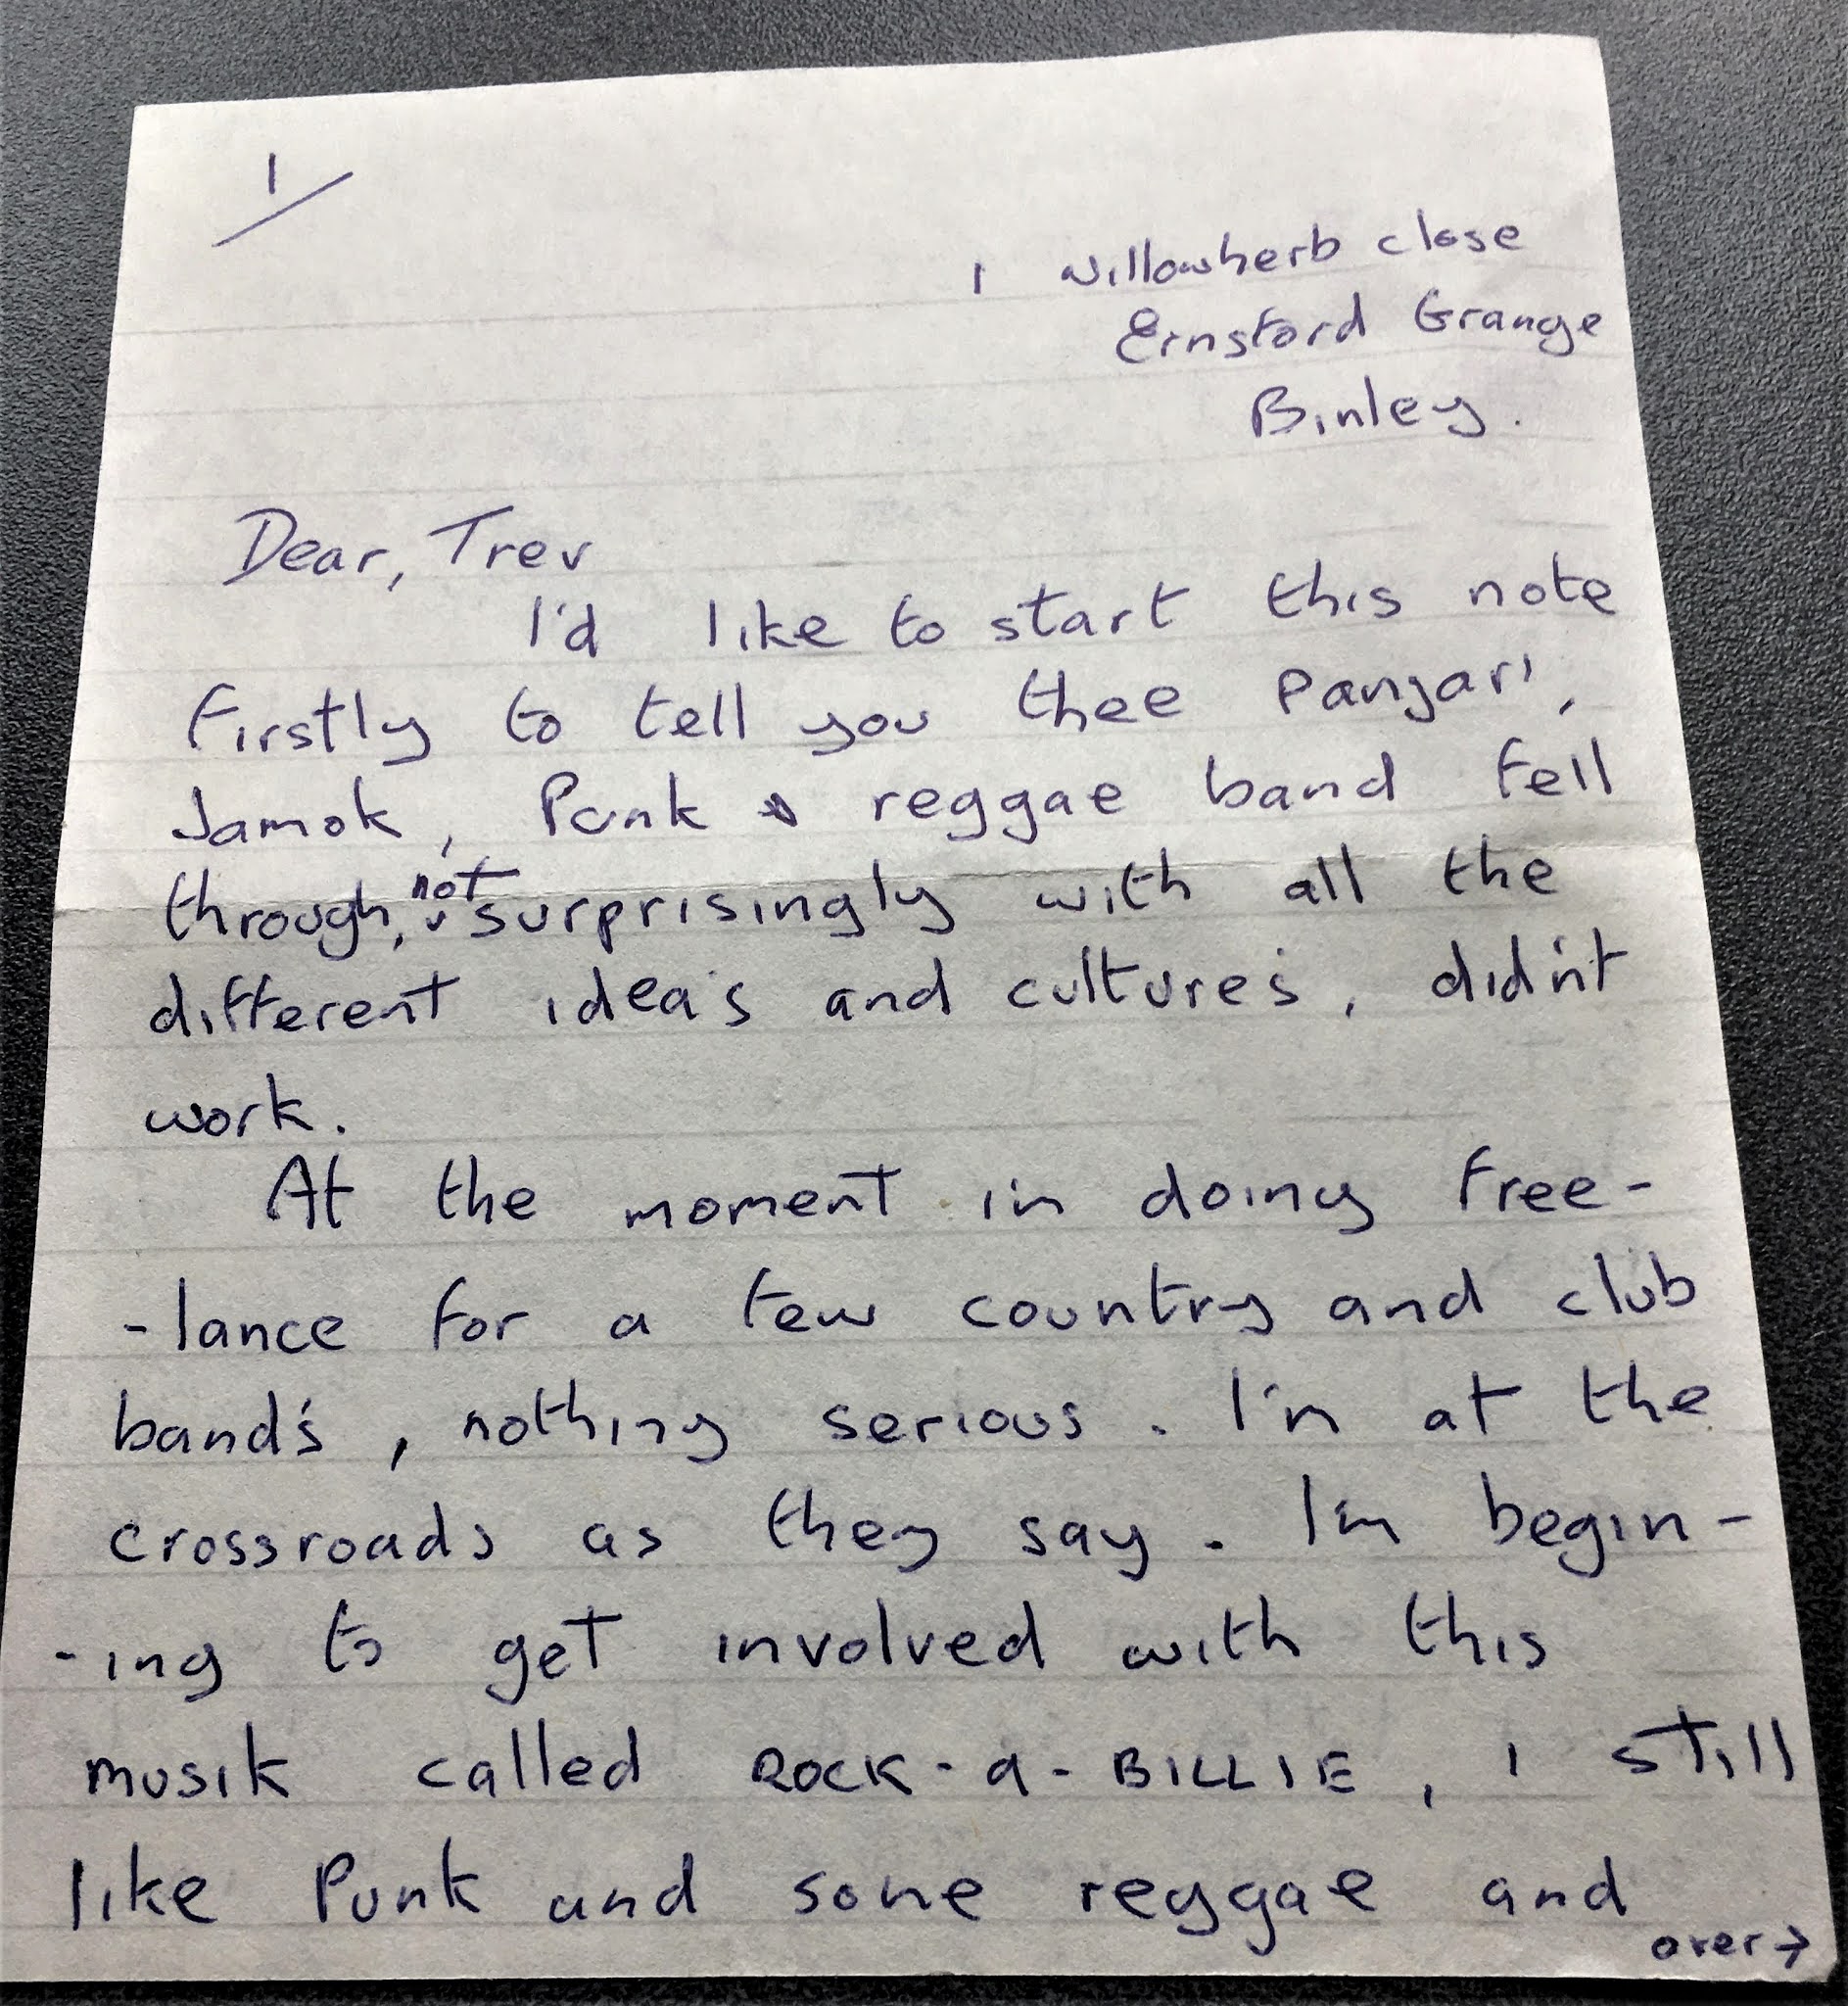 1/
1 Willowherb close
Ernsford Grange
Binley.
Dear, Trev
I'd like to start this note
Firstly to tell you thee Panjari,
Jamok, Punk & reggae band fell
through, not surprisingly with all the
different idea's and culture's, did'nt
work.
At the moment i'm doing free-
-lance for a few country and club
band's, nothing serious. I'm at the
crossroads as they say. I'm begin-
-ing to get involved with this
musik called ROCK-a-BILLIE, I still
like Punk and some reggae and
over→